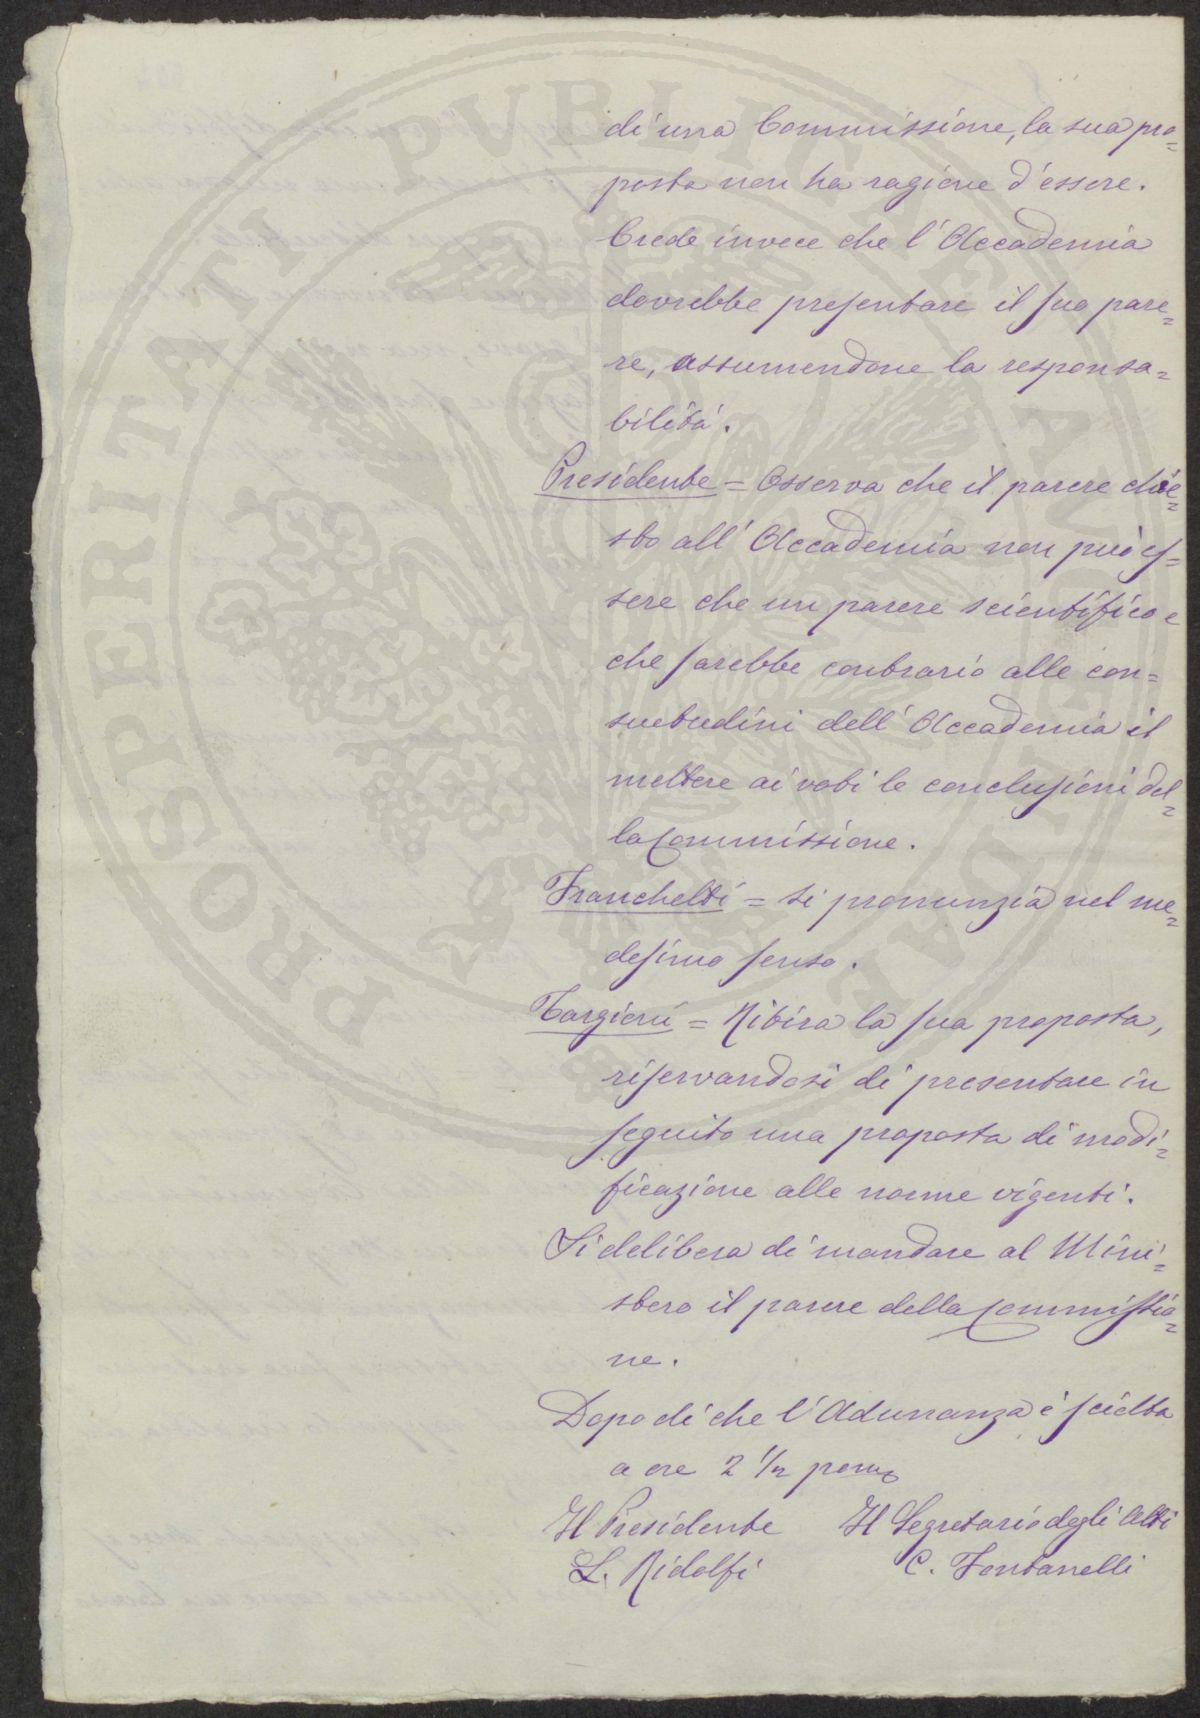 di una Commissione, la sua pro=
posta non ha ragione d'essere.
Crede invece che l'Accademia
dovrebbe presentare il suo pare=
re, assumendone la responsa=
bilità.
Presidente = Osserva che il parere chie=
sto all'Accademia non può es=
sere che un parere scientifico e
che sarebbe contrario alle con=
suetudini dell'Accademia il
mettere ai voti le conclusioni del=
la Commissione.
Franchetti = Si pronunzia nel me=
desimo senso.
Targioni = Ritira la sua proposta,
riservandosi di presentare in
seguito una proposta di modi=
ficazione alle norme vigenti.
Si delibera di mandare al Mini=
stero il parere della Commissio=
ne.
Dopo di che l'Adunanza è sciolta
a ore 2 1/2 pom.
Il Presidente Il Segretario degli Atti
L. Ridolfi C. Fontanelli
PROSPERITATI PVBLICAE AVGENDAE